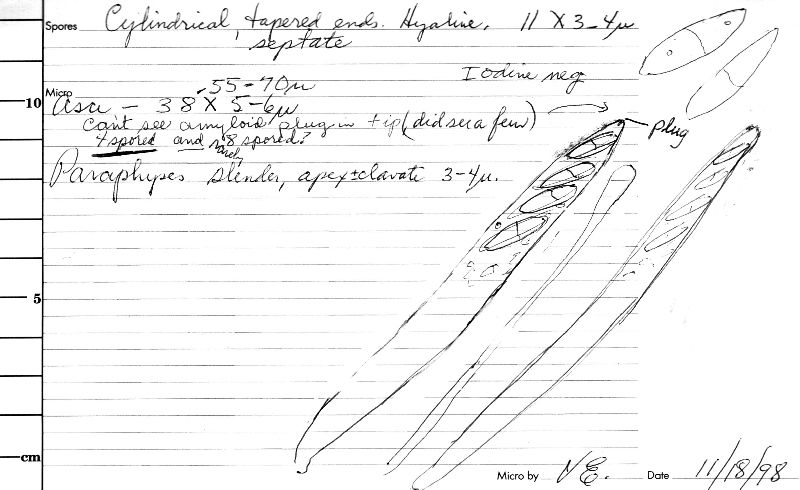 Spores Cylindrical, tapered ends. Hyaline. 11 X 3-4µ
septate
Iodine neg
55-70µ
Micro
10
Asci - 38 X 5-6µ
can't see amyloid plug in tip (did see a few)
plug
4 spored and 8 spored?
rarely
Paraphyses slender, apex ± clavate 3-4µ.
5
cm
Micro by N.E. Date 11/18/98